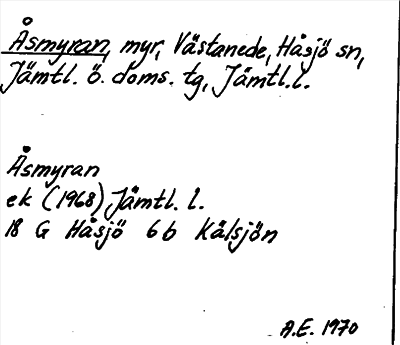 Åsmyran, myr, Västanede, Håsjö sn,
Jämtl. ö. doms. tg, Jämtl.l.
Åsmyran
ek (1968) Jämtl. l.
18 G Håsjö 6b Kälsjön
A.E. 1970